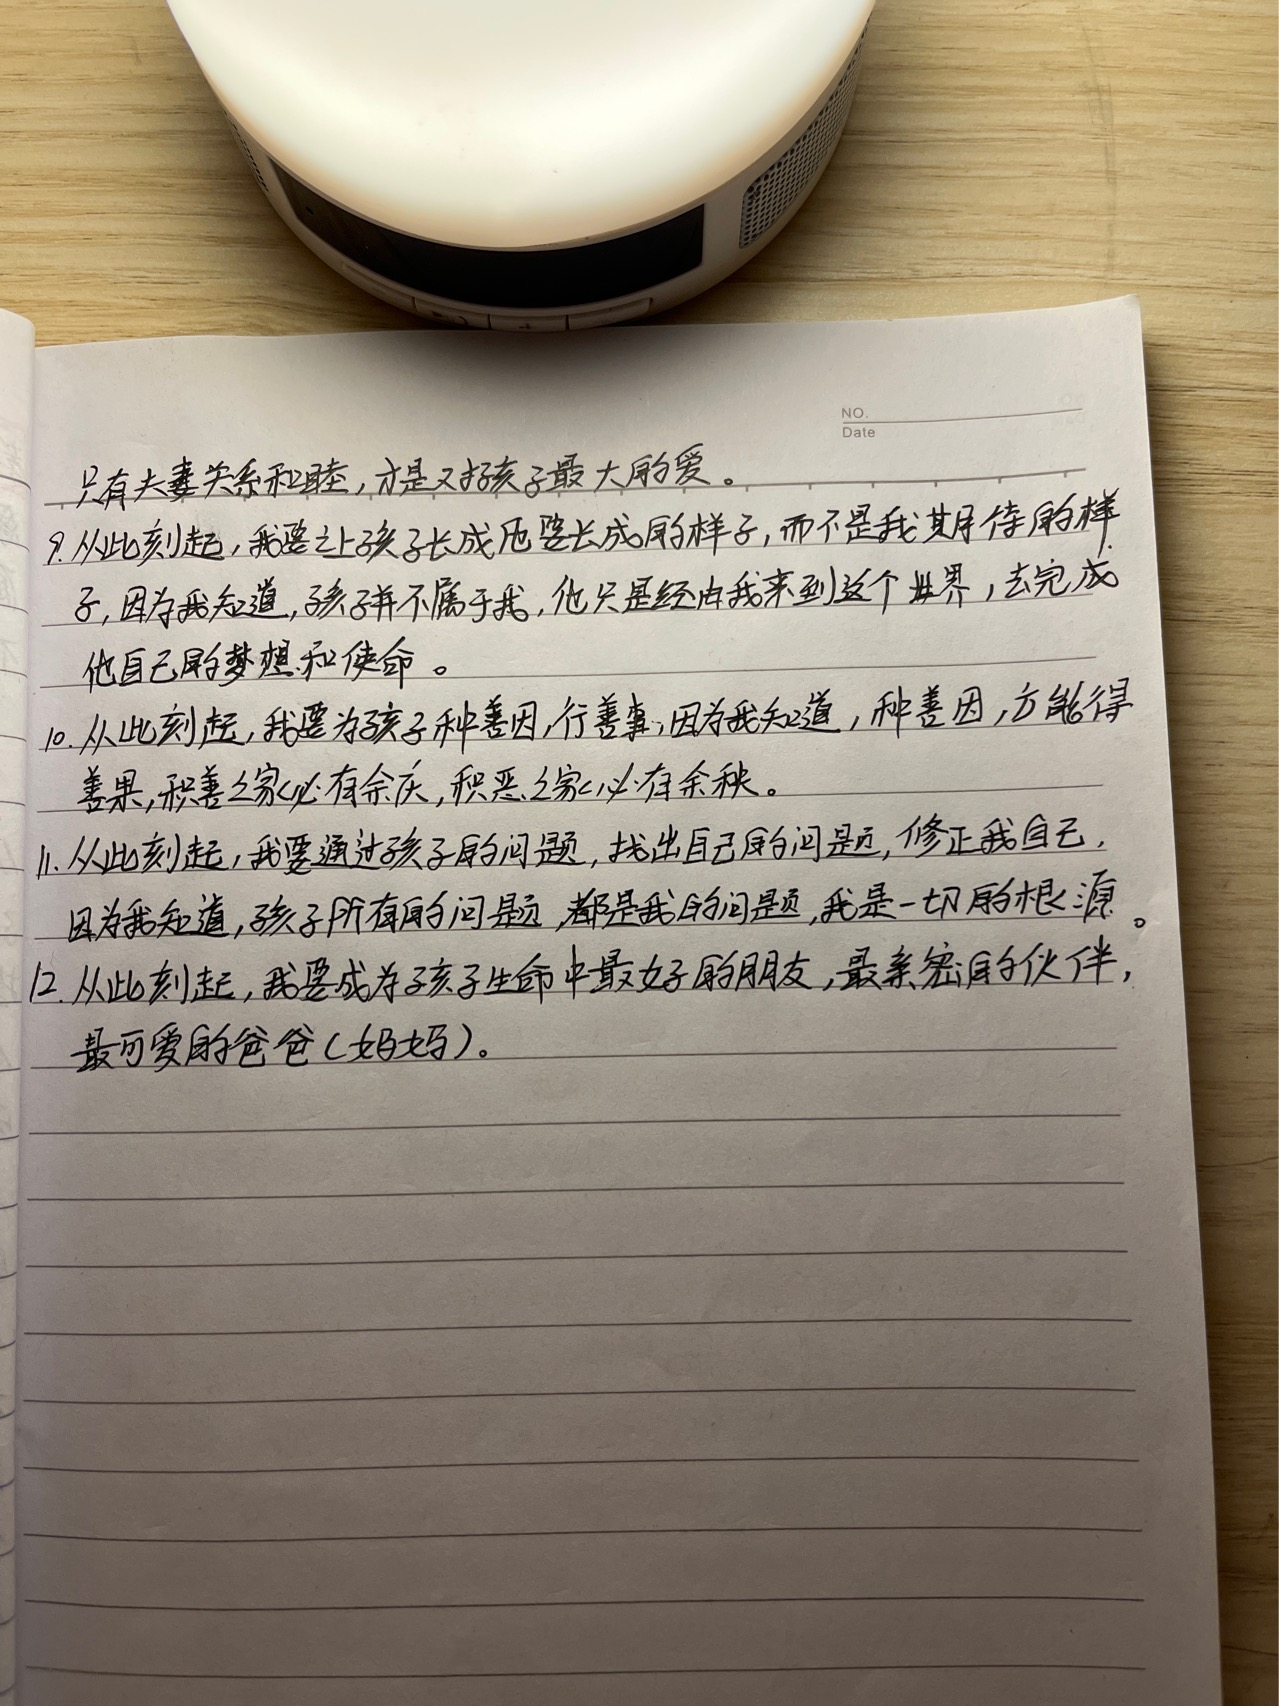 NO.
Date
只有夫妻关系和睦，才是对孩子最大的爱。
9. 从此刻起，我要让孩子长成他要长成的样子，而不是我期待的样
子，因为我知道，孩子并不属于我，他只是经由我来到这个世界，去完成
他自己的梦想和使命。
10. 从此刻起，我要为孩子种善因，行善事，因为我知道，种善因，方能得
善果，积善之家必有余庆，积恶之家必有余秧。
11. 从此刻起，我要通过孩子的问题，找出自己的问题，修正我自己，
因为我知道，孩子所有的问题，都是我的问题，我是一切的根源。
12. 从此刻起，我要成为孩子生命中最好的朋友，最亲密的伙伴，
最可爱的爸爸（妈妈）。